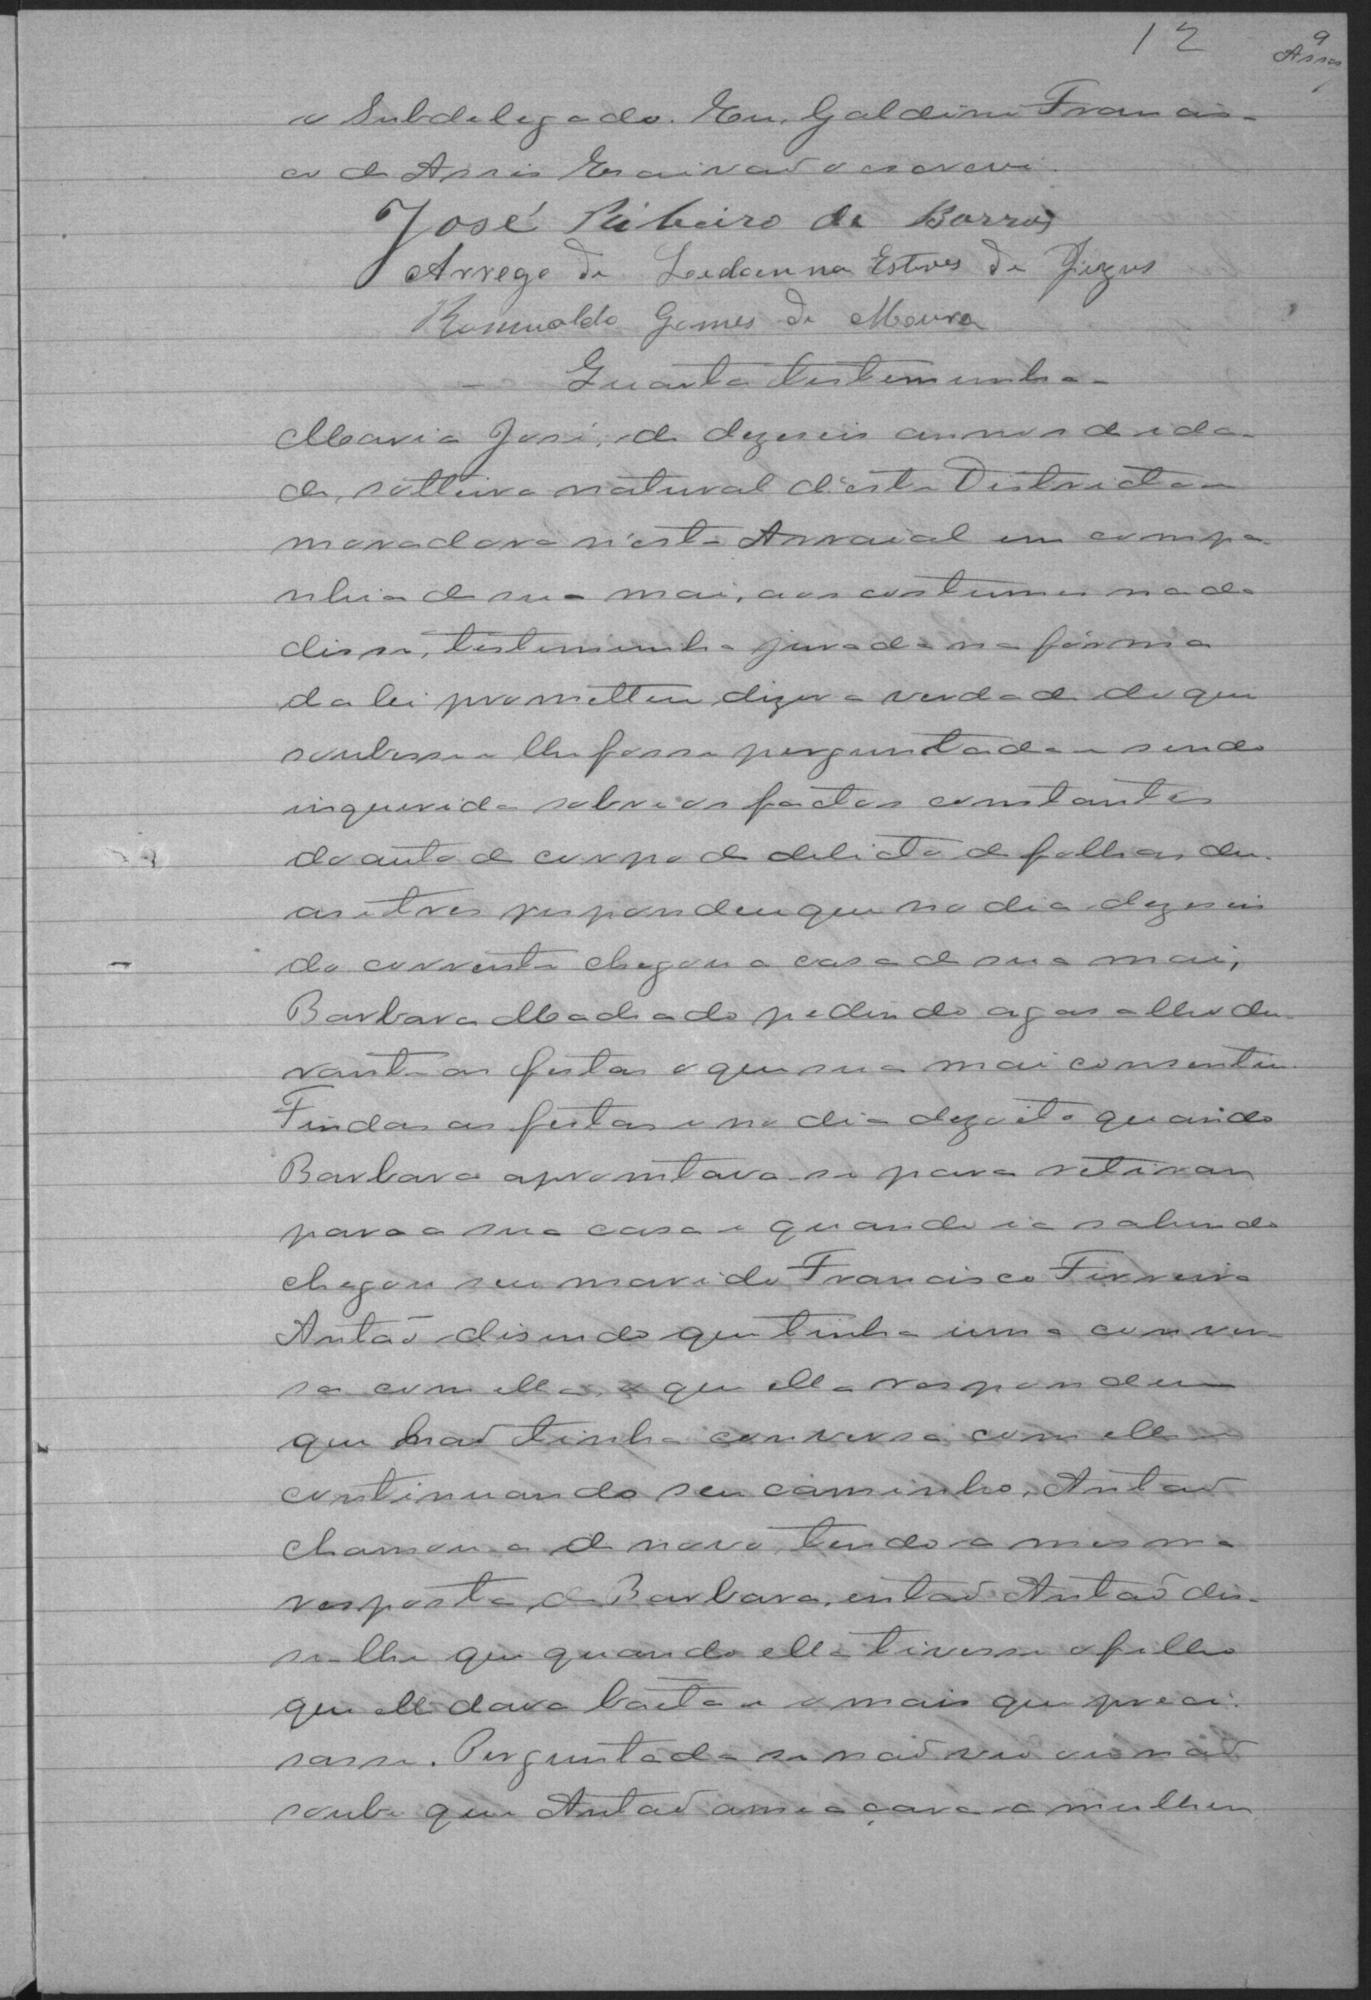 12
9
Assis
o Subdelegado. Eu, Galdino Francis-
co de Assis Escrivaõ o escrevi.
José Ribeiro de Barros
Arrogo de Ludanna Esteves de Jezus
Romualdo Gomes de Moura
Quarta testemunha
Maria José, de dezeseis annos de ida-
de, solteira natural d'este Districto e
moradora n'este Arraial em compa-
nhia de sua mai, aos costumes nada
disse, testemunha jurada na fórma
da lei prometteu dizer a verdade do que
soubesse e lhe fosse perguntada e sendo
inquerida sobre os factos constantes
do auto de corpo de delicto de folhas du-
as e tres respondeu que no dia dezeseis
do corrente chegou a casa de sua mai,
Barbara Machado pedindo agasalho du-
rante as festas o que sua mai consentiu.
Findas as festas e no dia dezoito quando
Barbara apromtava-se para retirar
para a sua casa e quando ia sahindo
chegou seu marido Francisco Ferreira
Antaõ disendo que tinha uma conver-
sa com ella, o que ella respondeu
que naõ tinha conversa com elle e
continuando seu caminho, Antaõ
chamou-a de novo tendo a mesma
resposta de Barbara, entaõ Antaõ dis-
se-lhe que quando ella tivesse o filho
que elle dava baêta e o mais que preci-
sasse. Perguntada se naõ viu ou naõ
soube que Antaõ ameaçava a mulher